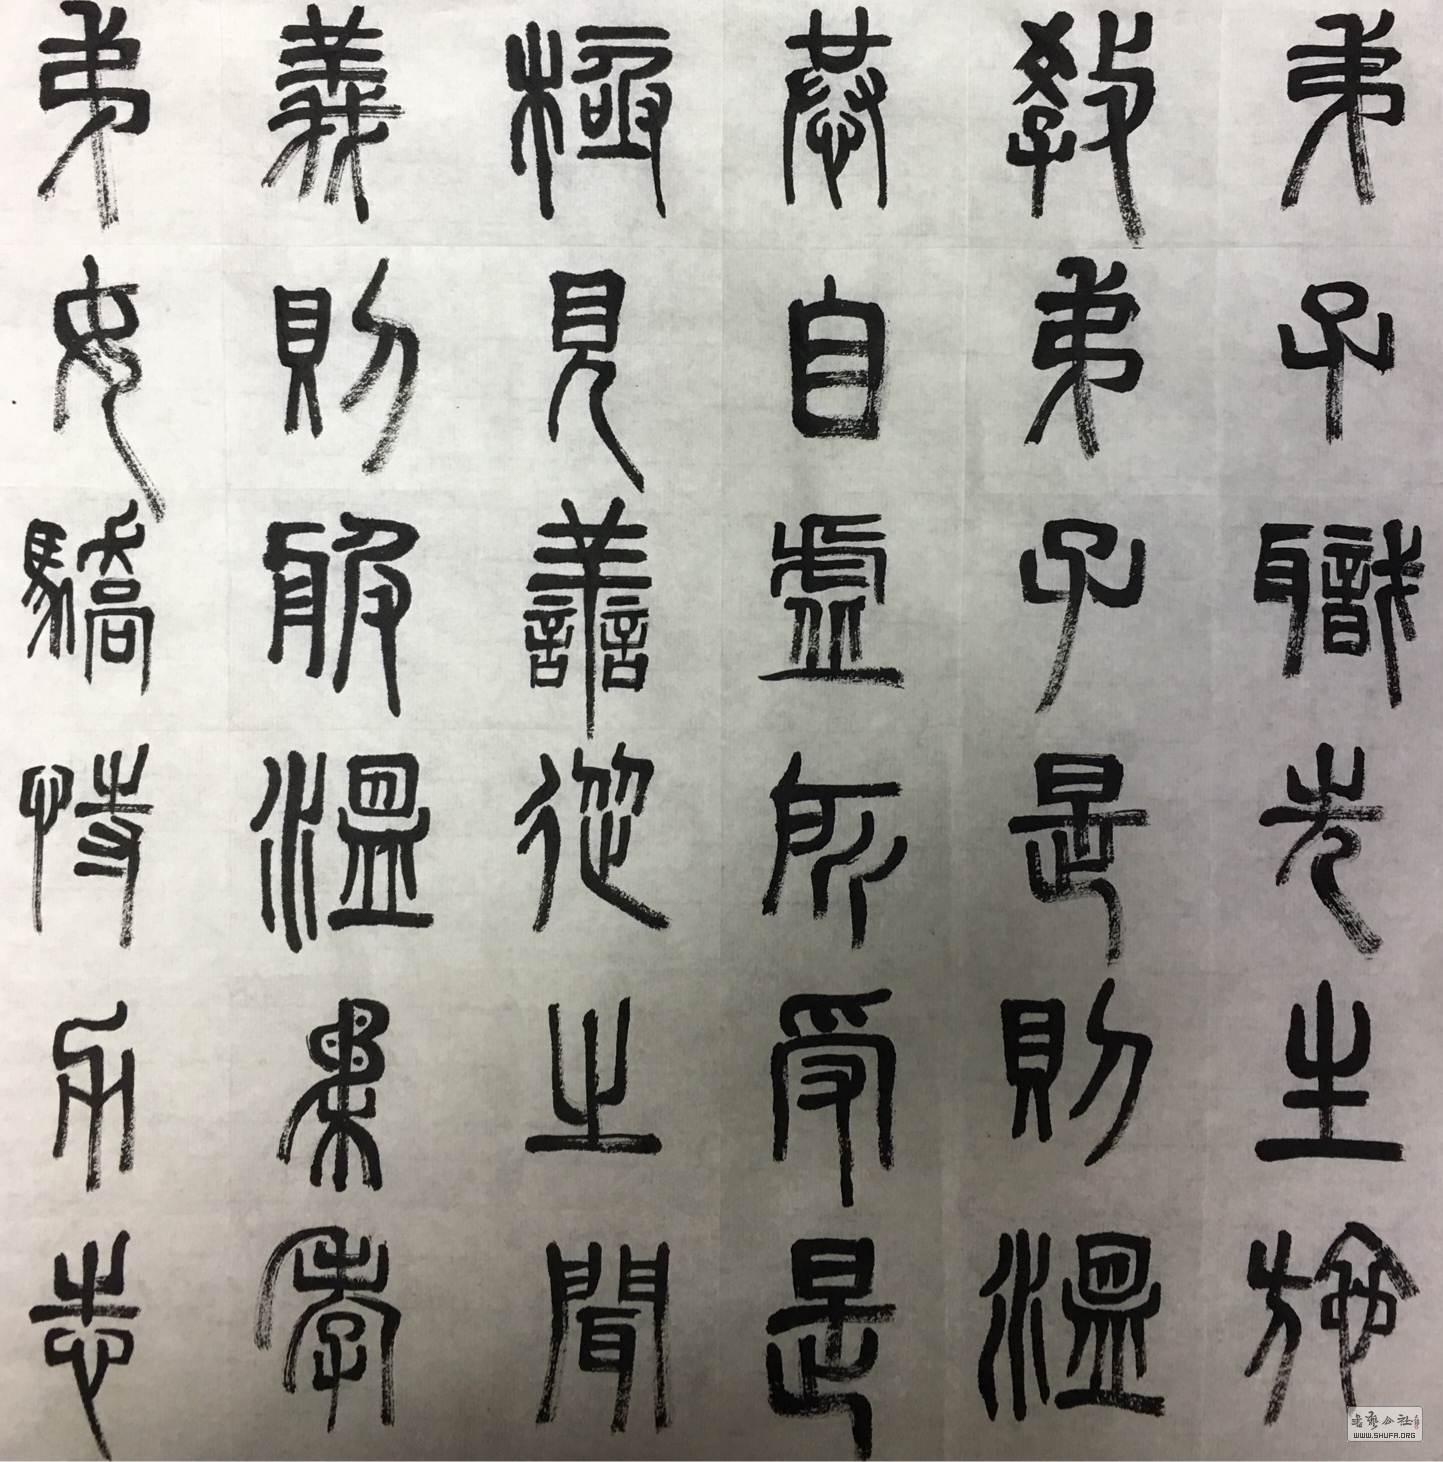 弟子職先生施
教弟子是則溫
恭自虛所受是
極見善從之聞
義則服溫柔孝
弟毋驕恃力志
WWW.SHUFA.ORG